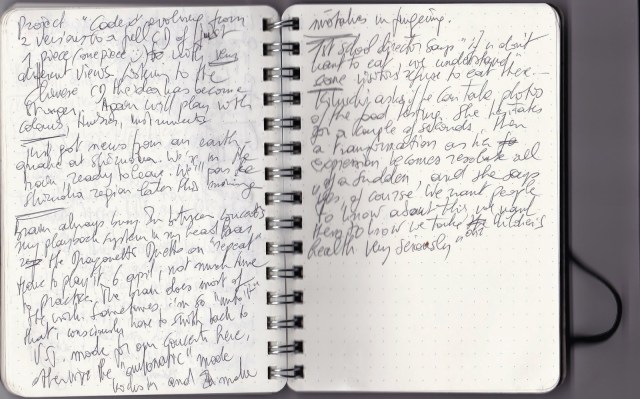 Project "Codex" evolving from
2 versions to a full (!) of just
1 piece (onepiece) too with very
different views. Listening to the
the idea has become
stronger. Again will play with
colours, timbres, instruments
Just got news from an earth
quake at Shizuoka. We're in the
train ready to leave. We'll pass the
Shizuoka region later this morning
Brain always busy. In between concerts
my playback system in my head has
the Dragonetti Duetto on "repeat"
Have to play it 6 april, not much time
to practice. The brain does most of
the work. Sometimes I'm so "into"
that, I consciously have to switch back to
mode for our concerts here,
otherwise the "automatic" mode
kicks in and I make
mistakes in fingering.
The school director says "if you don't
want to eat, we understand
some visitors refuse to eat there.—
asks if he can take photos
of the food testing. She hesitates
for a couple of seconds, then
a transformation as her
expression becomes resolute all
of a sudden, and she says
yes, of course! We want people
to know about this, we want
them to know we take our children's
health very seriously"